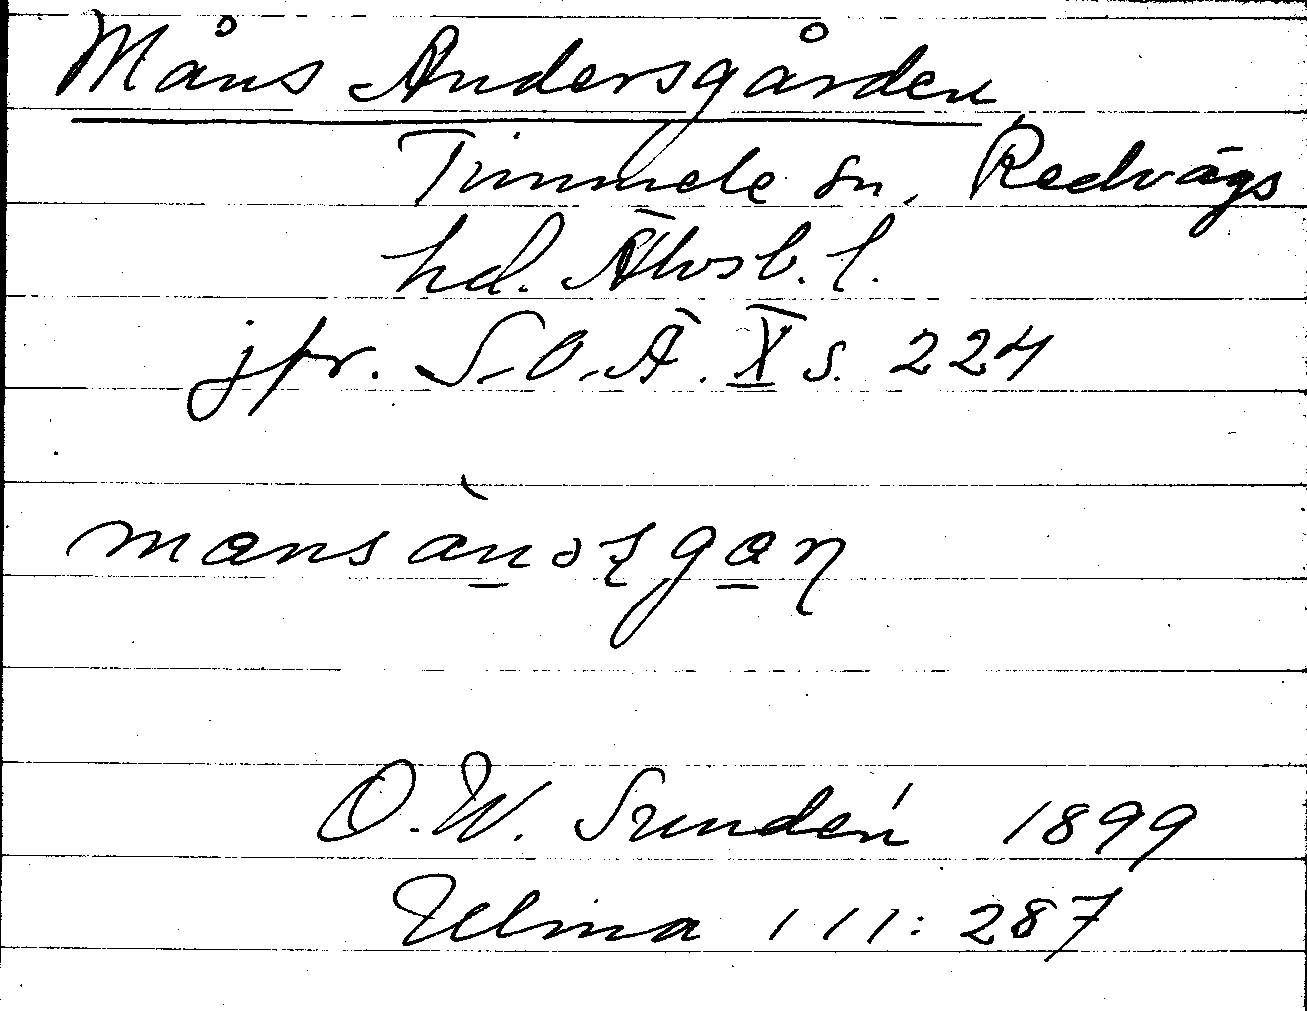 Måns Andersgården
Timmele sn, Redvägs
hd. Älvsb. l.
jfr. S.O.Ä. X s. 224
O.W. Sundén 1899
Ulma 111:287